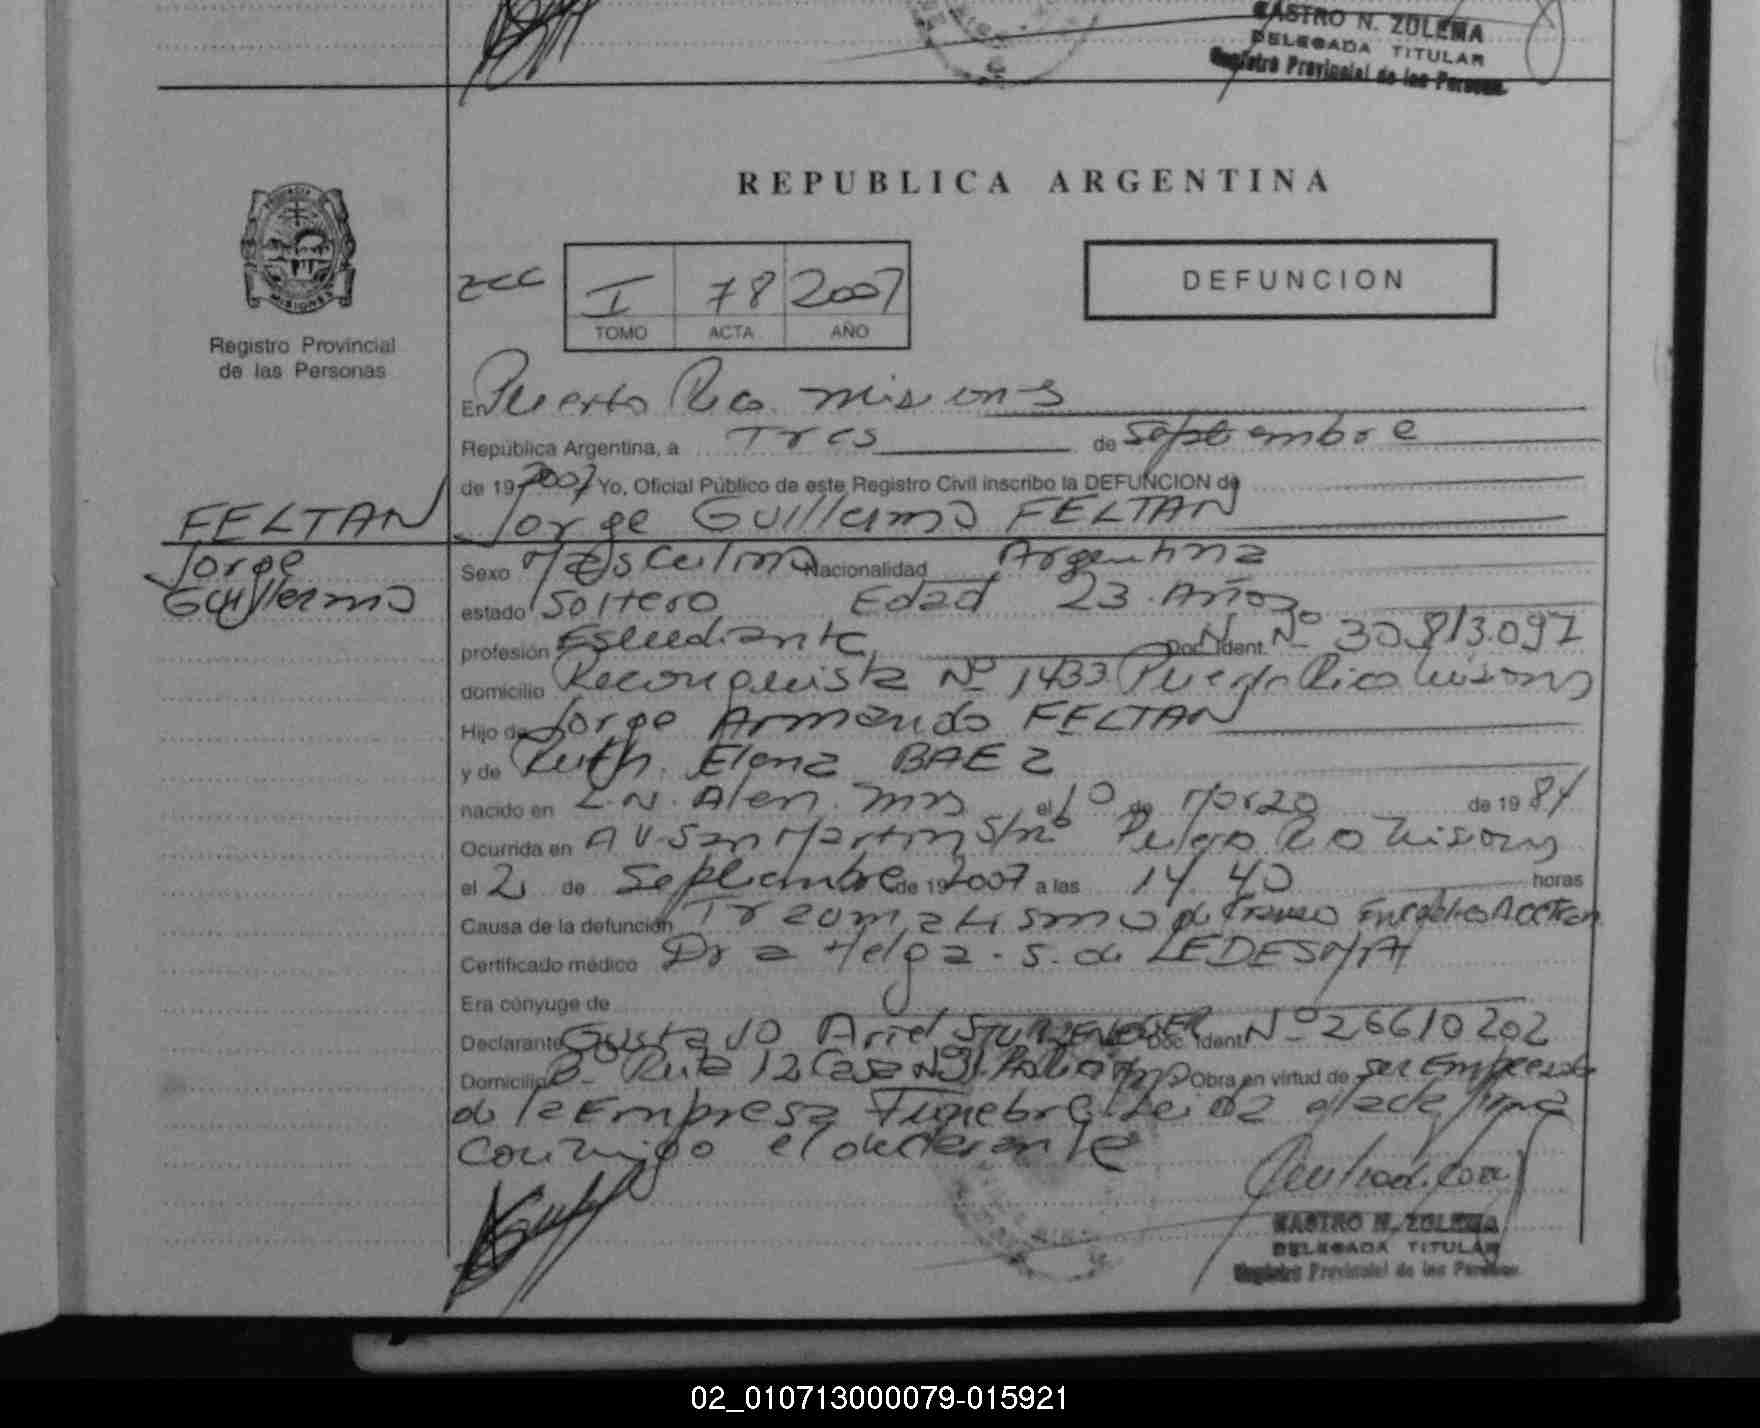 CASTRO N. ZULEMA
DELEGADA TITULAR
Registro Provincial de las Personas
REPUBLICA ARGENTINA
PROVINCIA
MISIONES
Registro Provincial
de las Personas
I 78 2007
TOMO ACTA AÑO
DEFUNCION
En Puerto Rico misiones
República Argentina, a Tres de Septiembre
de 19 2007 Yo, Oficial Público de este Registro Civil inscribo la DEFUNCION de
Jorge Guillermo FELTAN
FELTAN
Jorge
Guillermo
Sexo Masculino Nacionalidad Argentina
estado Soltero Edad 23 Años
profesión Estudiante Doc. Ident. Nº 30.813.097
domicilio Reconquista Nº 1433 Puerto Rico Misiones
Hijo de Jorge Armando FELTAN
y de Ruth Elena BAEZ
nacido en L.N. Alem. Mns el 1º de Marzo de 19 84
Ocurrida en AV. San Martin S/nº Puerto Rico Misiones
el 2 de Septiembre de 19 2007 a las 14 40 horas
Causa de la defunción Traumatismo de Craneo
Certificado médico Dra Helga. S. de LEDESMA
Era cónyuge de
Declarante Gustavo Ariel Doc. Ident. Nº 26610202
Domicilio Bº Ruta 12 Casa Nº Obra en virtud de ser Empleado
de la Empresa Funebre firma
conmigo el declarante
CASTRO N. ZULEMA
DELEGADA TITULAR
Registro Provincial de las Personas
02_010713000079-015921